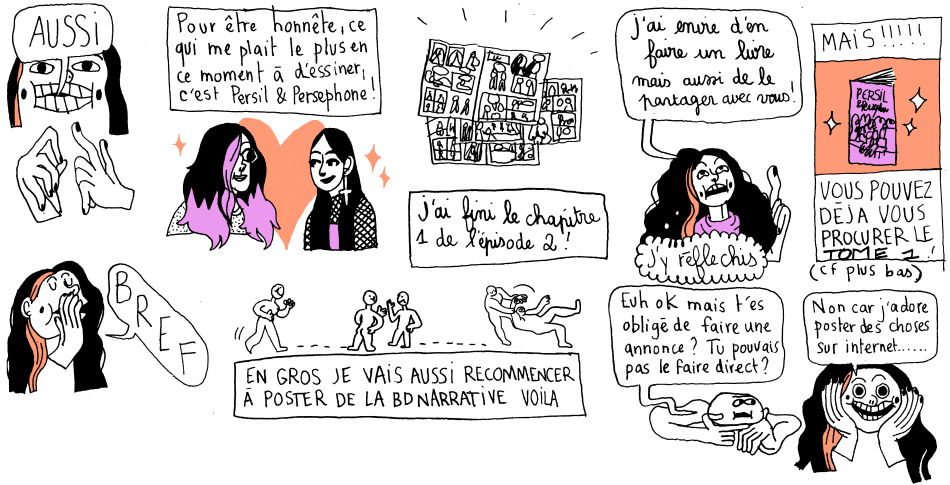 AUSSI
Pour être honnête, ce
qui me plait le plus en
ce moment à d'essiner,
c'est Persil & Persephone !
j'ai fini le chapitre
1 de l'épisode 2 !
j'ai envie d'en
faire un livre
mais aussi de le
partager avec vous !
J'y réfléchis
MAIS !!!!!
PERSIL
VOUS POUVEZ
DĒJA VOUS
PROCURER LE
TOME 1 !
(cf plus bas)
BREF
EN GROS JE VAIS AUSSI RECOMMENCER
À POSTER DE LA BD NARRATIVE VOILA
Euh ok mais t'es
obligé de faire une
annonce ? Tu pouvais
pas le faire direct ?
Non car j'adore
poster des choses
sur internet......